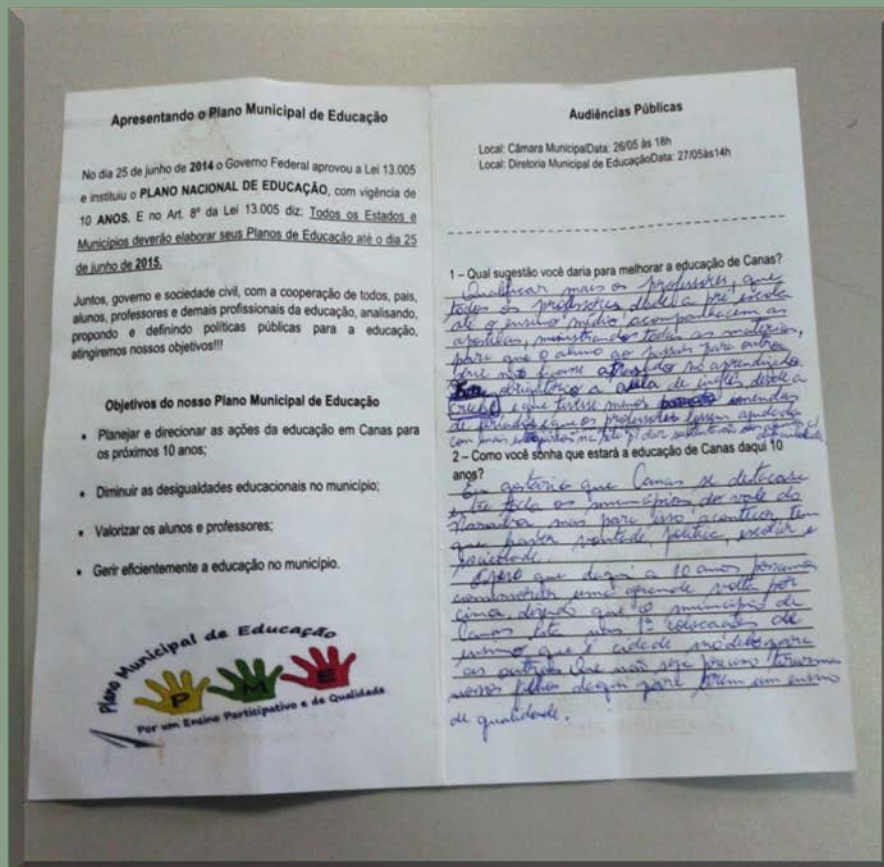 Apresentando o Plano Municipal de Educação
No dia 25 de junho de 2014 o Governo Federal aprovou a Lei 13.005
e instituiu o PLANO NACIONAL DE EDUCAÇÃO, com vigência de
10 ANOS. E no Art. 8º da Lei 13.005 diz: Todos os Estados e
Municípios deverão elaborar seus Planos de Educação até o dia 25
de junho de 2015.
Juntos, governo e sociedade civil, com a cooperação de todos, pais,
alunos, professores e demais profissionais da educação, analisando,
propondo e definindo políticas públicas para a educação,
atingiremos nossos objetivos!!!
Objetivos do nosso Plano Municipal de Educação
• Planejar e direcionar as ações da educação em Canas para
os próximos 10 anos;
• Diminuir as desigualdades educacionais no município;
• Valorizar os alunos e professores;
• Gerir eficientemente a educação no município.
Plano Municipal de Educação
P M E
Por um Ensino Participativo e de Qualidade
Audiências Públicas
Local: Câmara MunicipalData: 26/05 às 18h
Local: Diretoria Municipal de EducaçãoData: 27/05às14h
1 – Qual sugestão você daria para melhorar a educação de Canas?
Qualificar mais os professores, que
todos os professores, desde a pré escola
até o ensino médio, acompanhacem as
apostilas, ministrando todas as matérias,
para que o aluno ao passar para outra
não ficasse atrasado no aprendizado
obrigatório a aula de inglês, desde a
creche e que tivesse menos emendas
de feriados e que os professores fossem
com mais
2 – Como você sonha que estará a educação de Canas daqui 10
anos?
Eu gostaria que Canas se destacase
entre toda os municípios, do vale do
Paraíba mas para isso acontecer, tem
que haver vontade, politica, escolar e
sociedade.
Espero que daqui a 10 anos possamos
comemorar uma grande volta por
cima, dizendo que o município de
Canas esta nas 1ª colocações de
ensino que é cidade modelo para
as outras. Que não seja preciso tirarmos
nossos filhos daqui para terem um ensino
de qualidade.